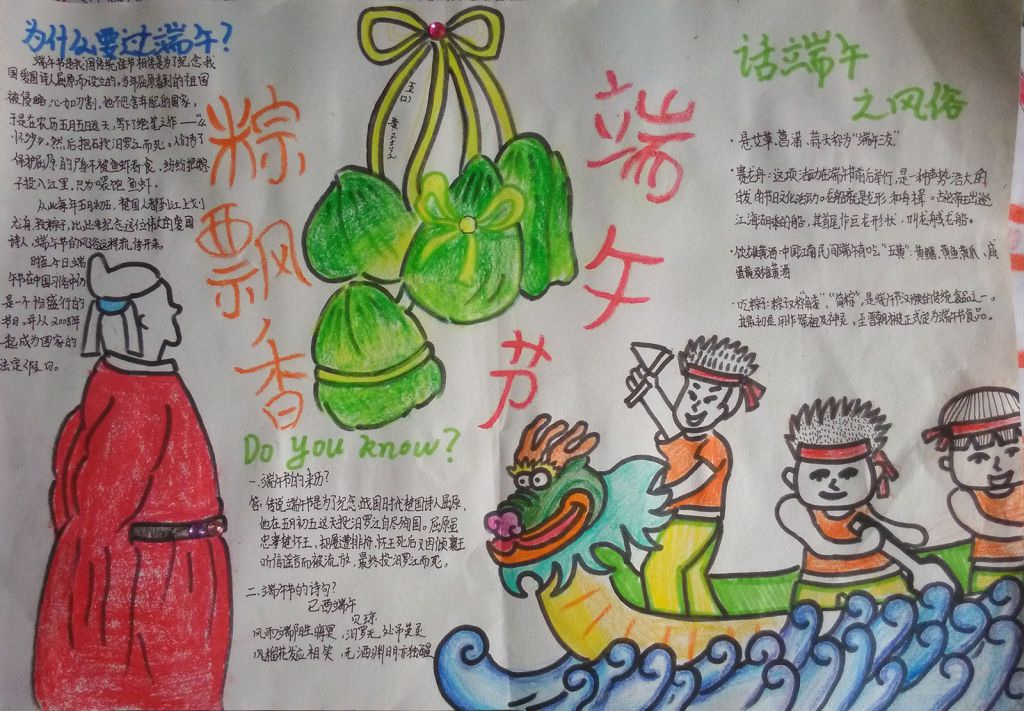 为什么要过端午?
端午节是我国传统佳节相传是为了纪念我
国爱国诗人屈原而设立的。当年屈原看到的祖国
被侵略,心如刀割,他不忍舍弃自己的国家,
于是在农历五月五日这天,写下了绝笔之作——"《
怀沙》",然后抱石投汨罗江而死。人们为了
保护屈原的尸体不被鱼虾吞食,纷纷把粽
子投入江里,只为喂饱鱼虾。
从此每年五月初五,楚国人都到江上划
龙舟,投粽子,以此来纪念这位伟大的爱国
诗人,端午节的风俗这样流传开来。
时至今日端
午节在中国习俗中仍
是一个十分盛行的
节日。并从2008年
起成为国家的
法定假日。
粽飘香
端午节
话端午
之风俗
悬艾草、菖蒲、蒜头称为"端午三友"
赛龙舟:这项活动在端午节前后举行,是一种声势浩大的
江海
吃粽子:粽子又称"角黍"、"筒粽",是端午节汉族的传统食品之一。
其最初是用作祭祖及神灵,至晋朝被正式定为端午节食品。
Do you know?
一.端午节的来历?
答:传说端午节是为了纪念战国时代楚国诗人屈原,
他在五月初五这天投汨罗江自尽殉国。屈原虽
忠事楚怀王,却屡遭排挤,怀王死后又因顷襄王
听信谗言而被流放,最终投汨罗江而死。
二.端午节的诗句?
己酉端午
贝琼
风雨端阳生晦冥,汨罗无处吊英灵
风榴花发应相笑,无酒渊明亦独醒